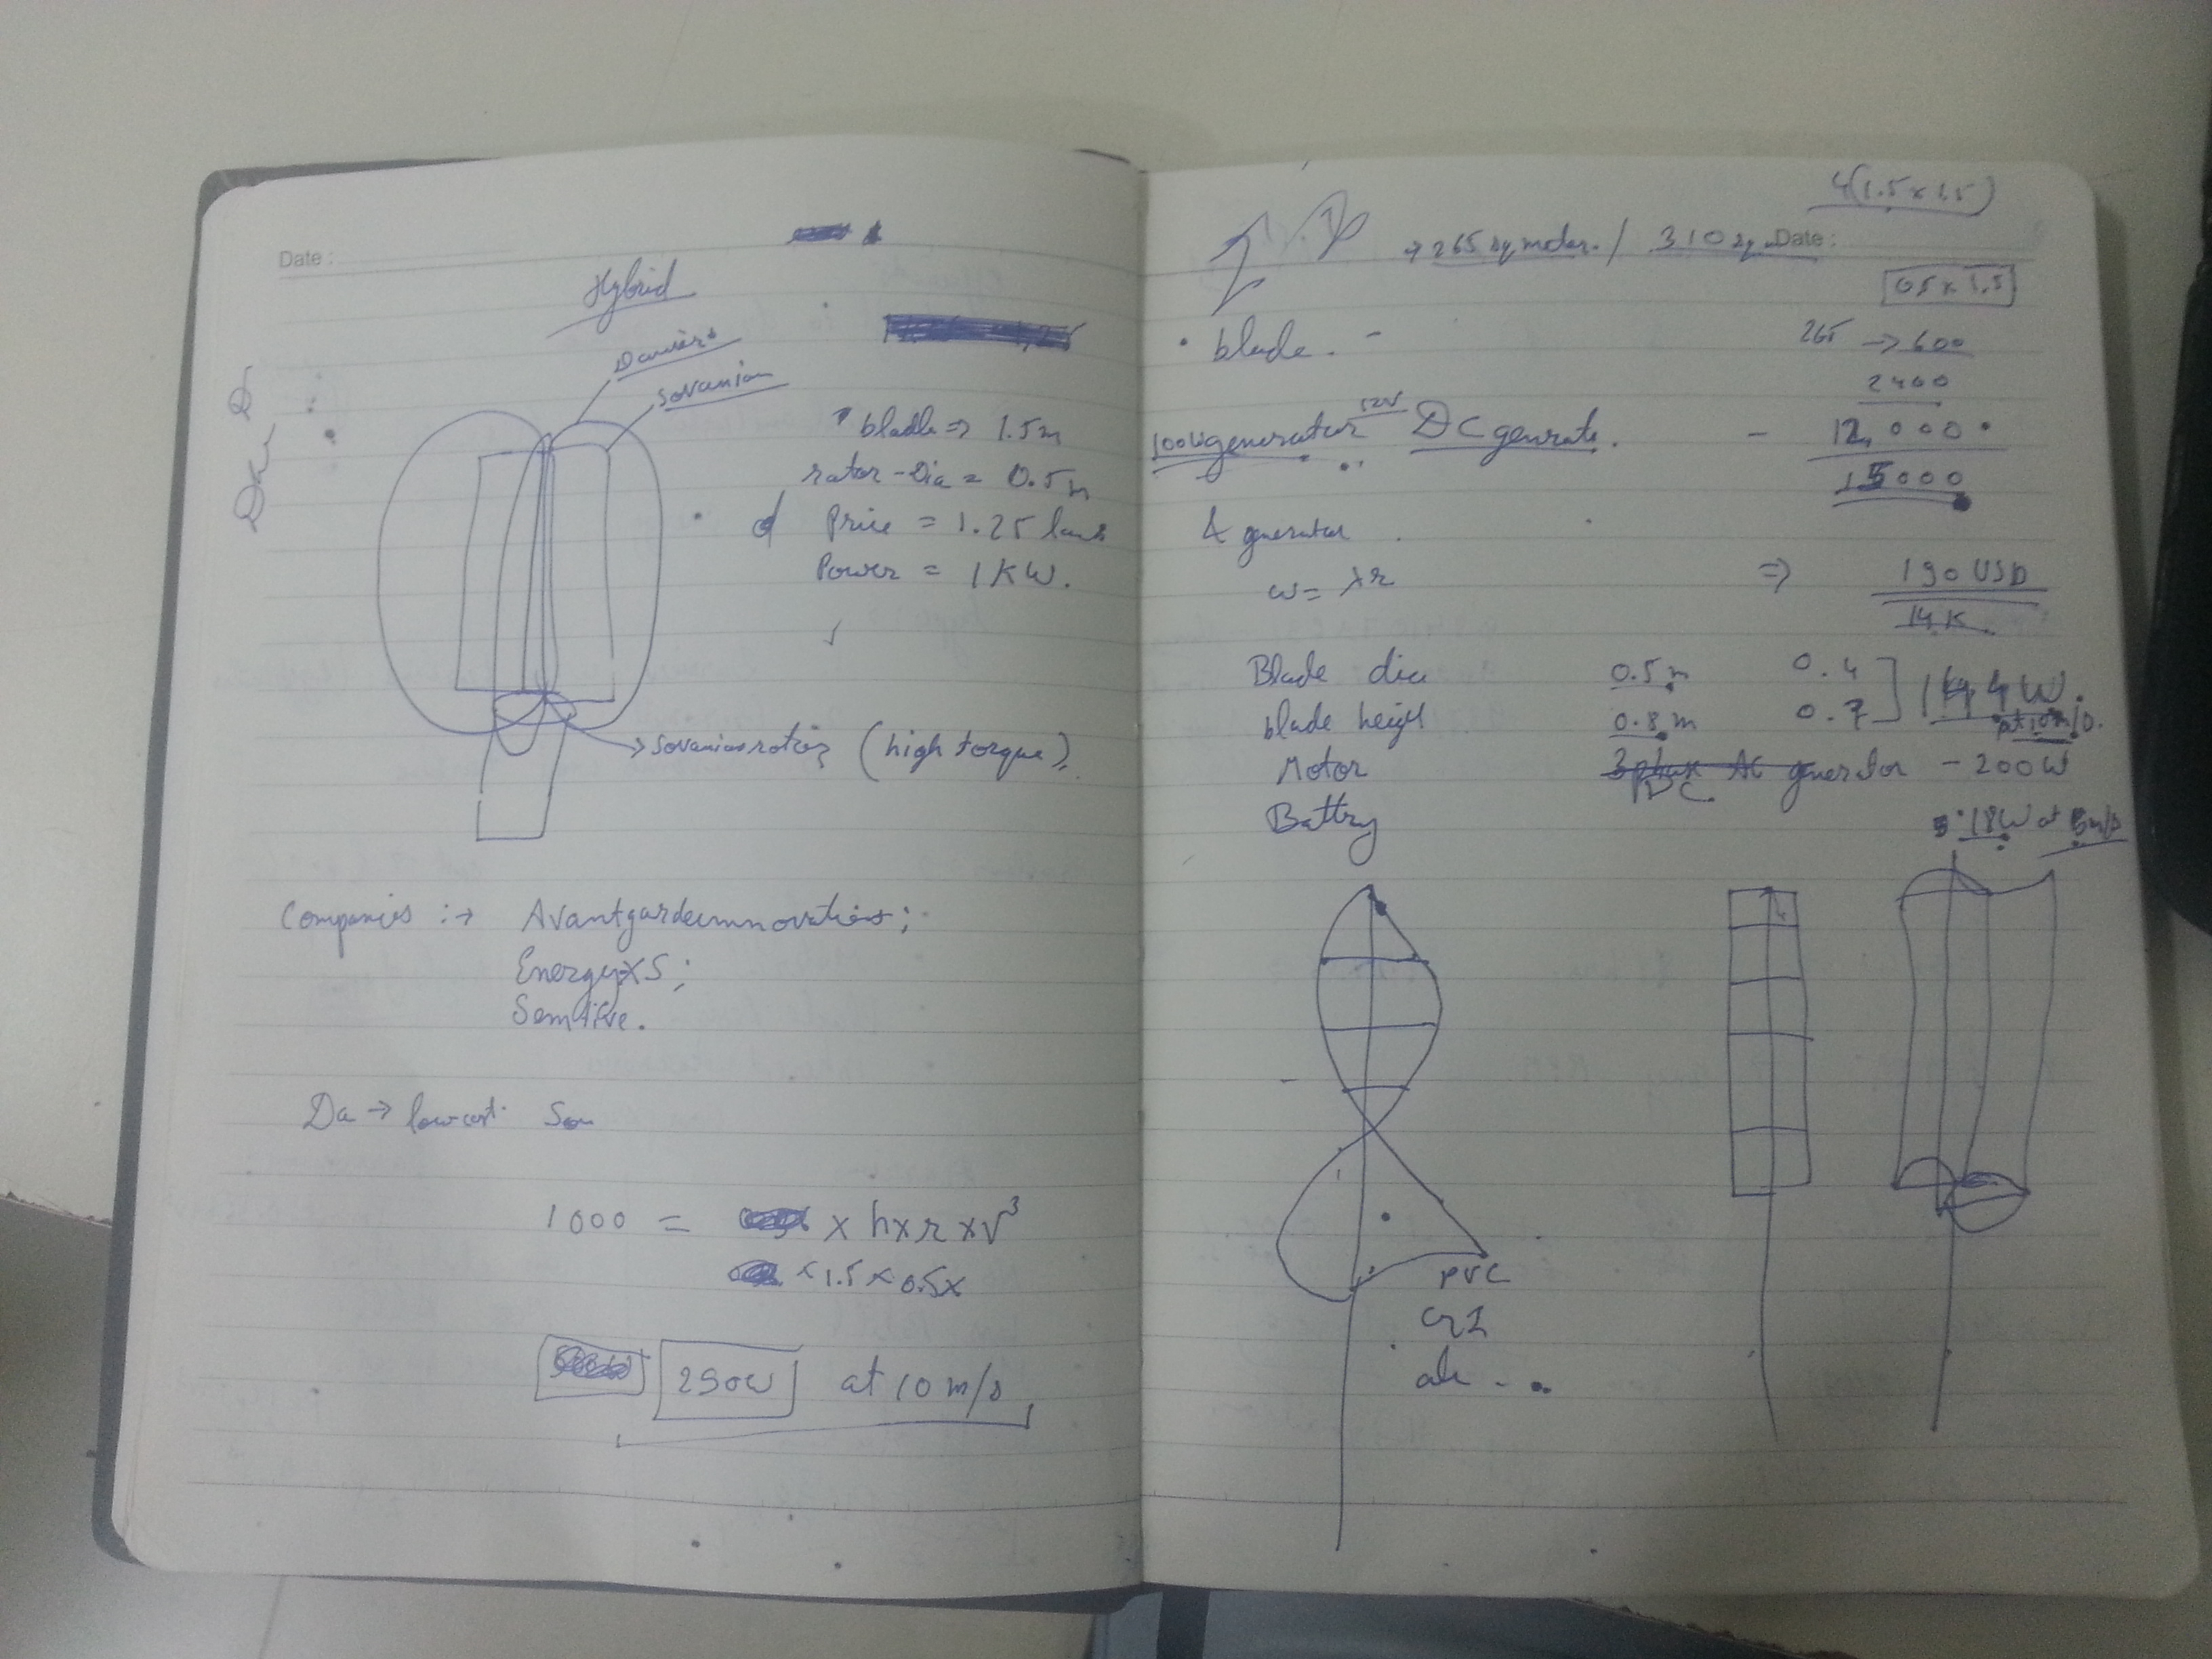 Date :
Hybrid
Darriers
Sovanian
bladle => 1.5m
rator - Dia = 0.5m
Price = 1.25 lauks
Power = 1 KW.
Sovanias rotin (high torque),
Companies :→ Avantgardeinnovations;
EnergyXS;
Semtive.
Da → low cost. Sou
1000 = x h x r x v³
x 1.5 x 0.5x
250W at 10 m/s
4(1.5 x 1.5)
→ 265 sq meter. / 310 sq
Date :
0.5 x 1.5
265 → 600
• blade. -
2400
100W generator 12V DC genrate. - 12,000
15000
& generator
ω = λr
=> 190 USD
14K
Blade dia 0.5m 0.4
blade height 0.8m 0.7
at 10 m/s.
Motor 3 phase AC generator - 200W
DC
Battry
18W at 5m/s
PVC
GI